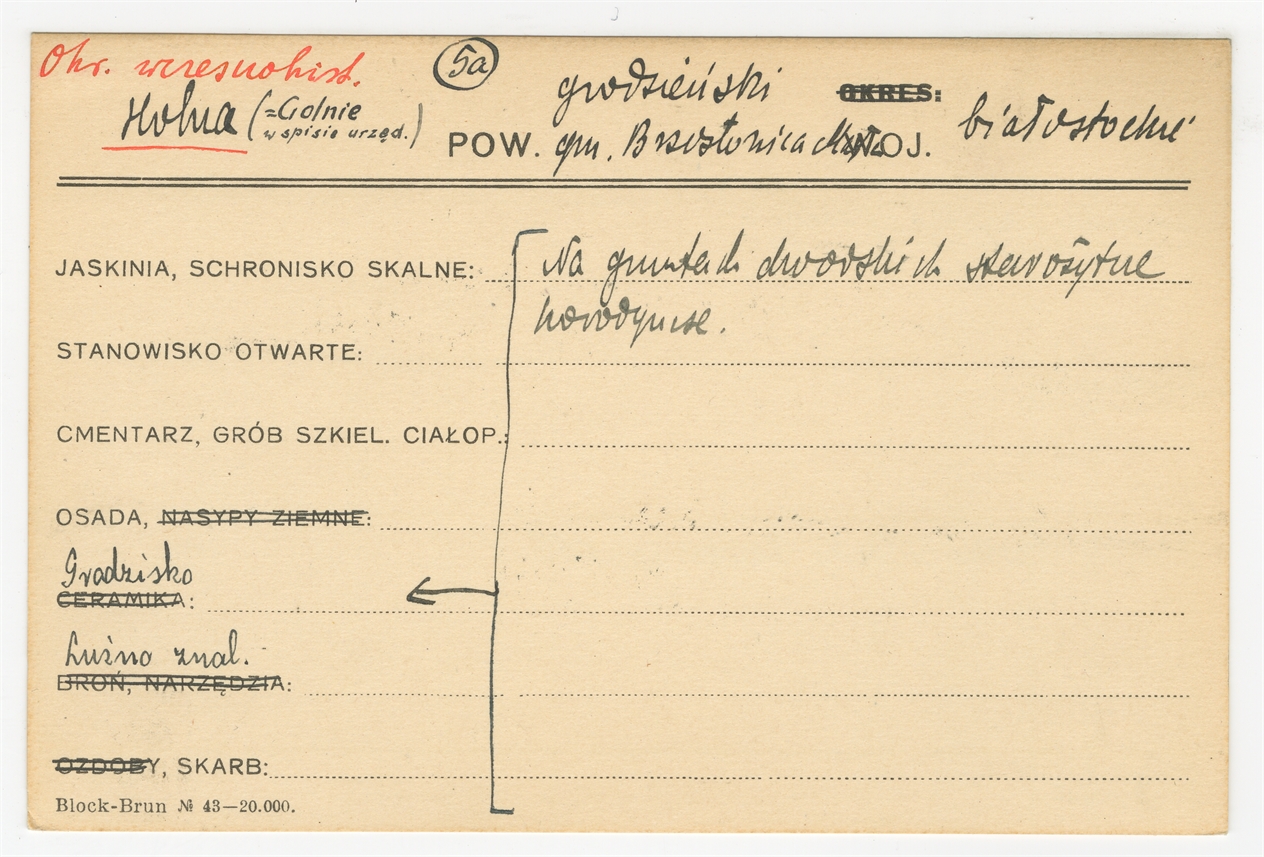 Okr. wczesnohist.
5a
Holna (=Golnie
w spisie urzęd.)
grodzieński
OKRES:
POW. gm. Brzostowica Mała WOJ. białostockie
JASKINIA, SCHRONISKO SKALNE: Na gruntach dworskich starożytne
horodyszcze.
STANOWISKO OTWARTE:
CMENTARZ, GRÓB SZKIEL. CIAŁOP.:
OSADA, NASYPY ZIEMNE:
Grodzisko
CERAMIKA:
Luźno znal.
BROŃ, NARZĘDZIA:
OZDOBY, SKARB:
Block-Brun № 43—20.000.